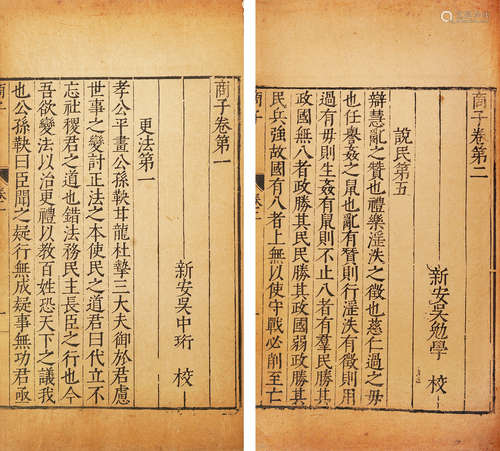 商子卷第一
新安吳中珩 校
更法第一
孝公平畫公孫鞅甘龍杜摯三大夫御於君慮
世事之變討正法之本使民之道君曰代立不
忘社稷君之道也錯法務民主長臣之行也今
吾欲變法以治更禮以教百姓恐天下之議我
也公孫鞅曰臣聞之疑行無成疑事無功君亟
商子 卷一
商子卷第二
新安吳勉學 校
說民第五
辯慧亂之贊也禮樂淫泆之徵也慈仁過之毋
也任譽姦之鼠也亂有贊則行淫泆有徵則用
過有毋則生姦有鼠則不止八者有羣民勝其
政國無八者政勝其民民勝其政國弱政勝其
民兵強故國有八者上無以使守戰必削至亡
商子 卷二